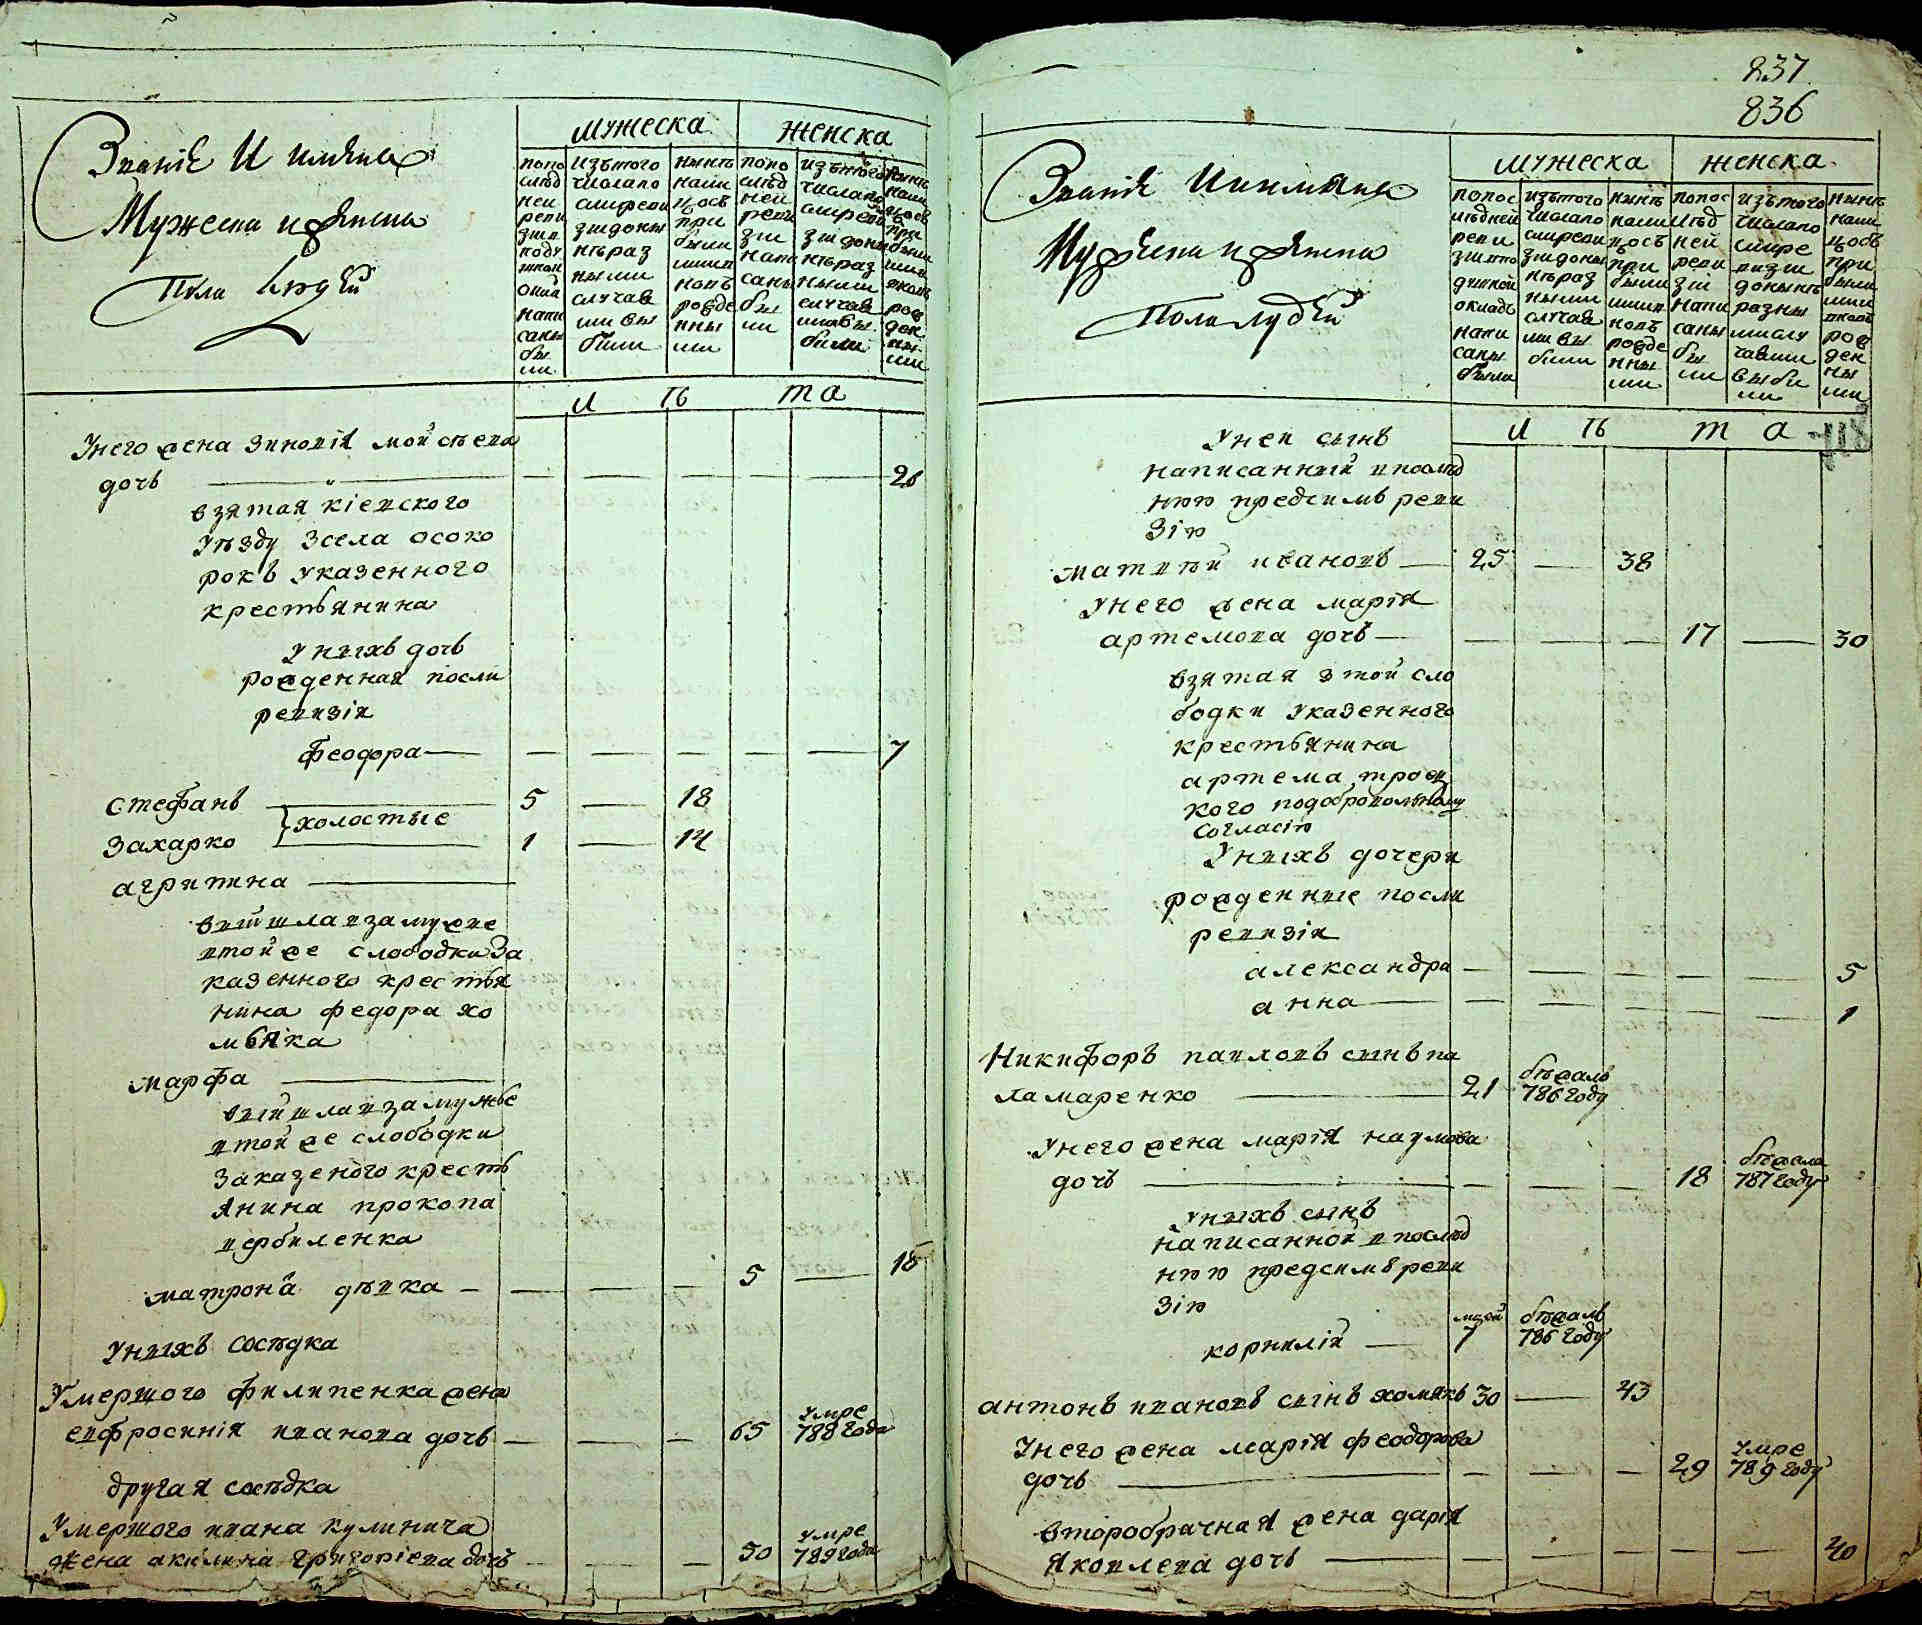 Званіе И имяна
Мужеска и женска
Пола людей
мужеска
женска
попо
слѣд
ней
реви
зіи в
поду
шной
оклад
напи
саны
бы
ли
изътого
числапо
смреви
зіидоны
нѣраз
ными
случая
ми вы
были
нынѣ
нали
цосъ
при
были
ми и
новъ
рожде
нны
ми
попо
слѣд
ней
реви
зіи
напи
саны
бы
ли
изътого
числапо
смреви
зіи доны
нѣраз
ными
случая
мивы
были
нынѣ
нали
цосъ
при
были
ми и
новъ
рож
ден
ны
ми
л ѣ т а
Унего жена зиновія мойсѣева
дочь — — — — — — 26
взятая кіевского
уѣзду зсела осоко
рокъ указенного
крестьянина
Унихъ дочь
рожденная посли
ревизіи
феодора — — — — — — 7
стефанъ 5 — 18
холостые
захарко 1 — 14
агрипина
выйшлавзамужве
втойже слободки за
казенного крестья
нина федора хо
мьяка
марфа
выйшлавзамужве
втойже слободки
заказеного кресть
янина прокопа
цербиленка
матрона дѣвка — — — — 5 — 18
Унихъ сосѣдка
Умершого филипенка жена
евфросинія иванова дочь — — — 65 умре 788 года
другая сосѣдка
Умершого ивана кулинича
жена акилина григоріева дочь — — — 50 умре 789 года
837
836
Званіе Иимяна
Мужеска и женска
Пола людей
мужеска
женска
попос
лѣдней
реви
зіипо
душной
окладъ
напи
саны
были
изътого
числапо
смреви
зіидоны
нѣраз
ными
случая
ми вы
были
нынѣ
нали
цосъ
при
были
ми и
новъ
рожде
нны
ми
попос
лѣд
ней
реви
зіи
напи
саны
бы
ли
изътого
числапо
смре
визіи
донынѣ
разны
мислу
чаями
выбы
ли
нынѣ
нали
цосъ
при
были
ми и
новъ
рож
ден
ны
ми
л ѣ т а
Уней сынъ
написанный впослѣд
нюю предсимъ реви
зію
матвѣй ивановъ — 25 — 38
Унего жена марія
артемова дочь — — — — 17 — 30
взятая зтой сло
бодки указенного
крестьянина
артема троц
кого подобровольному
согласію
Унихъ дочери
рожденные посли
ревизіи
александра — — — — — — 5
анна — — — — — — 1
Никифоръ павловъ сынъ па
ламаренко — 21 бѣжалъ 786 году
Унего жена марія наумова
дочь — — — — 18 бѣжала 787 году
Унихъ сынъ
написанной впослѣд
нюю предсимъ реви
зію
корнилій — 7 бѣжалъ 786 году
антонъ ивановъ сынъ хомякъ 30 — 43
Унего жена марія феодорова
дочь — — — — 29 умре 789 году
второбрачная жена дарія
яковлева дочь — — — — — — 40